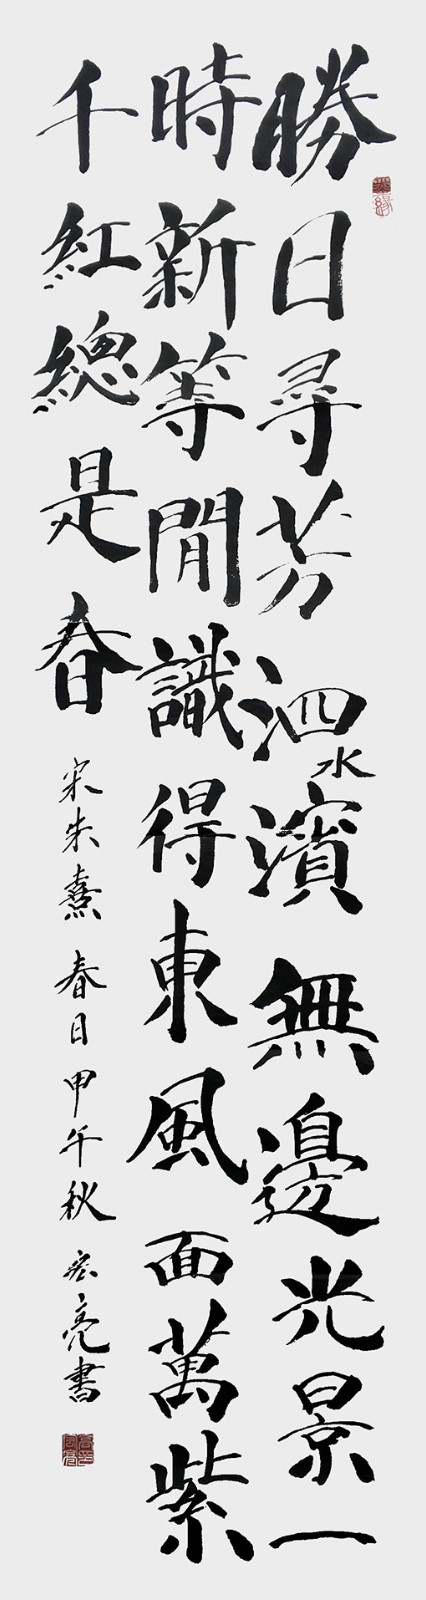 勝日尋芳泗水濱無邊光景一
時新等閒識得東風面萬紫
千紅總是春
宋朱熹春日甲午秋宏亮書